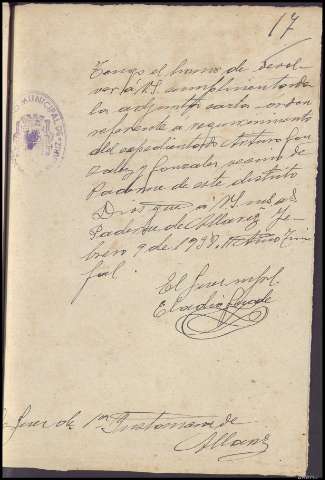 17
Tengo el honor de devol-
ver á V.S. cumplimentada
la adjunta carta-orden
referente a requerimiento
del expedientado Arturo Gon
zalez y Gonzalez, vecino de
Paderne de este distrito
Dios gue á V.S. m. a.
Paderne de Allariz Fe-
brero 9 de 1938. II Año Triun
fal.
El Juez mpl.
Eladio
Juez de 1ª Instancia de
Allariz